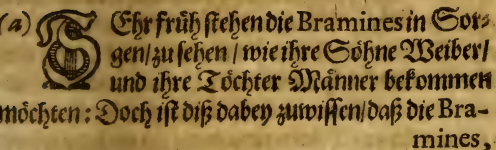 (a) SEhr früh stehen die Bramines in Sor-
gen/zu sehen / wie ihre Söhne Weiber/
und ihre Töchter Männer bekommen
möchten: Doch ist diß dabey zuwissen/daß die Bra-
mines,